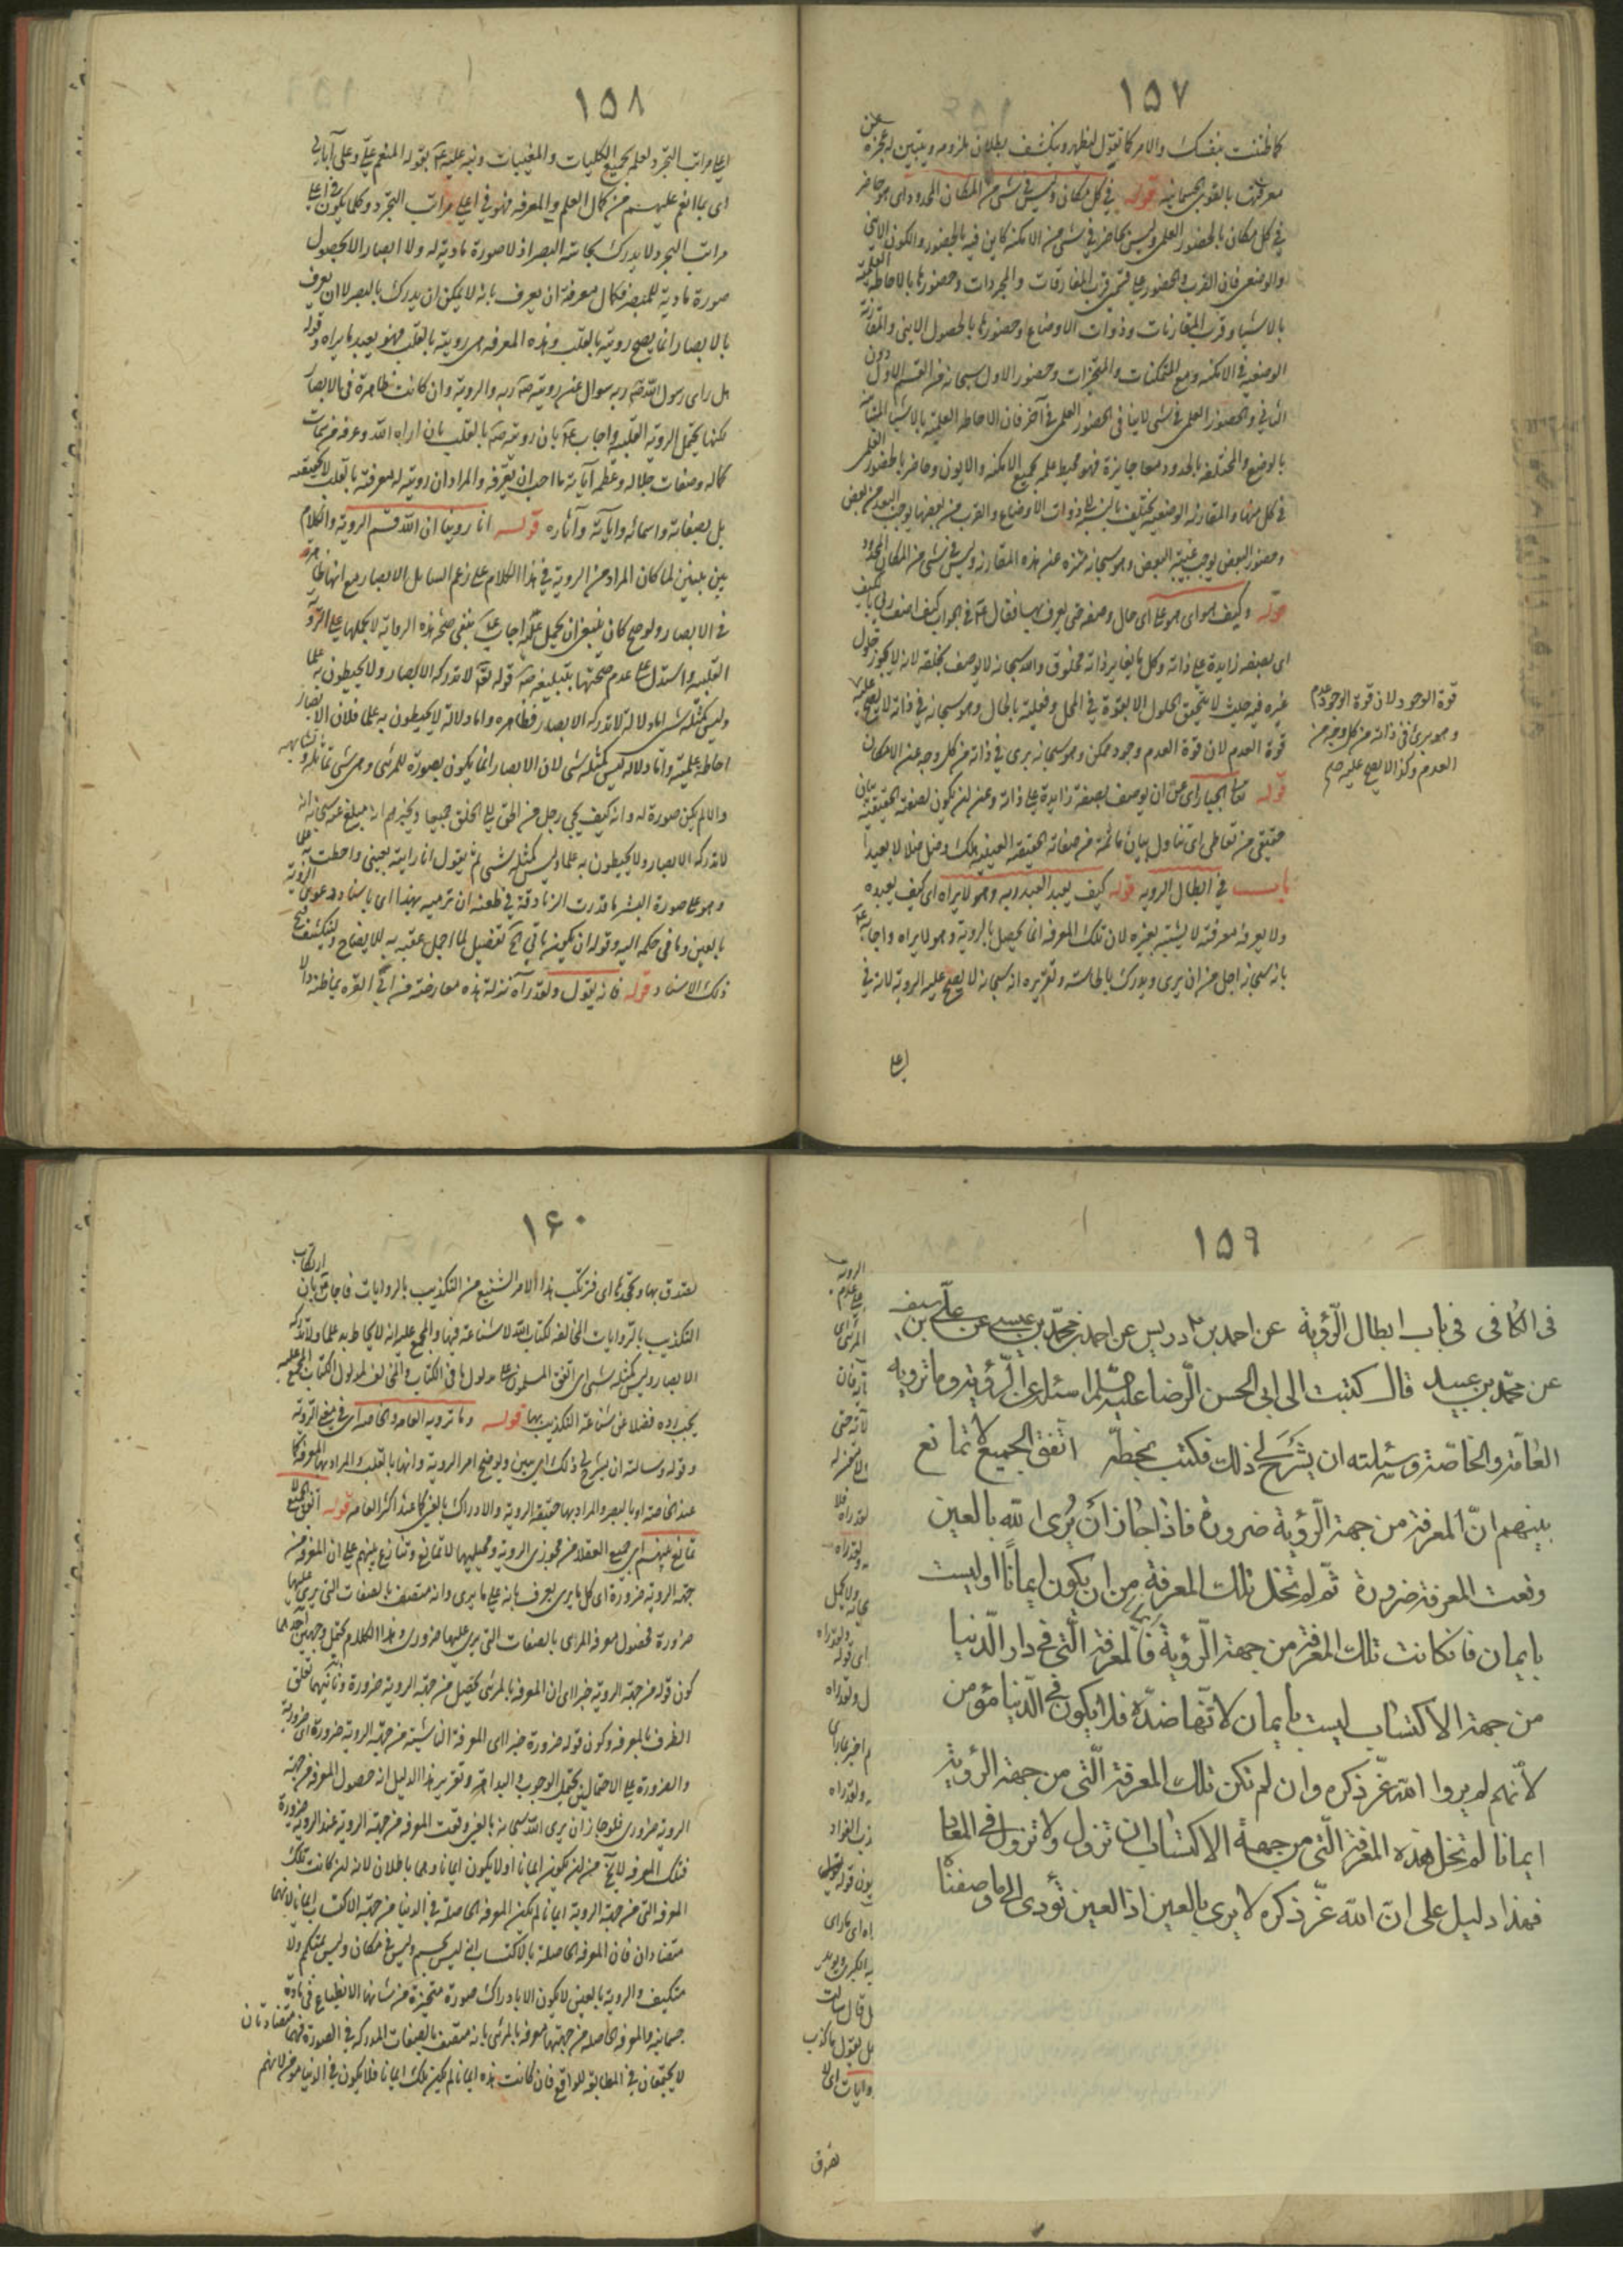 ١٥٧
كما ظننت بنفسك والامر كما تقول لظهر وينكشف بطلان ملزومه ويتبين له عجزه عن
معرفتها بالقوى الجسمانية قوله في كل مكان وليس في شئ من المكان المحدود اى هو حاضر
في كل مكان بالحضور العلمى وليس بحاضر في شئ من الامكنة كاين فيه بالحضور والكون الاينى
والوضعى فان القرب والحضور على قسمين قرب المفارقات والمجردات وحضورها بالاحاطة العلمية
بالاشياء وقرب المقارنات وذوات الاوضاع وحضورها بالحصول الاينى والمقارنة
الوضعية في الامكنة ومع المتمكنات والمتحيزات وحضور الاول سبحانه من القسم الاول دون
الثانى والحضور العلمى في شئ لا ينافى الحضور العلمى في آخر فان الاحاطة العلمية بالاشياء المتباينة
بالوضع والمختلفة بالحدود معا جايزة فهو محيط علمه بجميع الامكنة والايون وحاضر بالحضور العلمى
في كل منها والمقارنة الوضعية يختلف بالنسبة الى ذوات الاوضاع والقرب من بعضها يوجب البعد من بعض
وحضور البعض يوجب غيبة البعض وهو سبحانه منزه عن هذه المقارنة وليس في شئ من المكان المحدود
قوله وكيف هو اى هو على اى حال وصفة حتى يعرف بها فقال عم في الجواب كيف اصف ربى بالكيف
اى بصفة زايدة على ذاته وكل ما يغاير ذاته مخلوق والله سبحانه لا يوصف بخلقه لانه لا يجوز حلول
غيره فيه حيث لا يتحقق الحلول الا بقوة في المحل وفعلية بالحال وهو سبحانه في ذاته لا يصح عليه
قوة العدم لان قوة العدم وجود ممكن وهو سبحانه برى في ذاته من كل وجه عن الامكان
قوله تعالى الجبار اى عن ان يوصف بصفة زايدة على ذاته وعن ان يكون لصفته الحقيقية بيان
حقيقى من تعاطى اى تناول بيان ما ثمة من صفاته الحقيقية العينية هلك وضل ضلالا بعيدا
باب في ابطال الرويه قوله كيف يعبد العبد ربه وهو لا يراه اى كيف يعبده
ولا يعرفه معرفة لا يشتبه بغيره لان تلك المعرفة انما يحصل بالروية وهو لا يراه واجابه عم
بانه سبحانه اجل من ان يرى ويدرك بالحاسه وتقريره انه سبحانه لا يصح عليه الروية لانه في
اعلى
قوة الوجود ولان قوة الوجود عدم
وهو برئ في ذاته من كل وجه من
العدم وكذا لا يصح عليه صح
١٥٨
اعلى مراتب التجرد لعلمه بجميع الكليات والمغيبات ونبه عليه عم بقوله المنعم على وعلى آبائى
اى بما انعم عليهم من كمال العلم والمعرفة فهو في اعلى مراتب التجرد وكلما يكون في اعلى
مراتب التجرد لا يدرك بحاسة البصر اذ لا صورة مادية له ولا ابصار الا بحصول
صورة مادية للمبصر فكمال معرفته ان يعرف بانه لا يمكن ان يدرك بالبصر لا ان يعرف
بالابصار انما يصح رويته بالقلب وهذه المعرفة هى رويته بالقلب فهو يعبد ما يراه وقوله
هل راى رسول الله صم ربه سوال عن رويته صم ربه والروية وان كانت ظاهرة في الابصار
لكنها يحتمل الروية القلبية واجاب عم بان رويته صم بالقلب بان اراه الله وعرفه من سمات
كماله وصفات جلاله وعظم آياته ما احب ان يعرفه والمراد ان رويته المعرفة بالقلب لا بحقيقته
بل بصفاته واسمائه وآياته وآثاره قوله انا روينا ان الله قسم الروية والكلام
بين نبيين لما كان المراد من الروية في هذا الكلام على زعم السايل الابصار مع انها ظاهرة
في الابصار ولو صح كان ينبغى ان يحمل عليه اجاب عم بنفى صحة هذه الرواية لا بحملها على الروية
القلبية واستدل على عدم صحتها بتبليغه صم قوله تعم لا تدركه الابصار ولا يحيطون به علما
وليس كمثله شئ اما دلالة لا تدركه الابصار فظاهره واما دلالة لا يحيطون به علما فلان الابصار
احاطة علمية واما دلالة ليس كمثله شئ لان الابصار انما يكون بصورة للمرئى وهى شئ تماثله وتشابهه
والا لم يكن صورة له وانه كيف يجئ رجل من الحق الى الخلق جميعا ويخبرهم انه مبلغ عنه سبحانه انه
لا تدركه الابصار ولا يحيطون به علما وليس كمثله شئ ثم يقول انا رايته بعينى واحطت به علما
وهو على صورة البشر ما قدرت الزنادقة في طعنه ان ترميه بهذا اى باسناد دعوى الروية
بالعين وما في حكمه اليه وقوله ان يكون ياتى اه تفصيل لما اجمل عقبه به للايضاح ولينكشف قبح
ذلك الاسناد قوله فانه يقول ولقد رآه نزلة هذه معارضة من ابى قره بما ظنه دالا
١٥٩
فى الكافى فى باب ابطال الرّؤية عن احمد بن ادريس عن احمد بن محمّد بن عيسى عن علىّ بن سيف
عن محمّد بن عبيد قال كتبت الى ابى الحسن الرّضا عليه السّلم اسئله عن الرّؤية وما ترويه
العامّة والخاصّة وسئلته ان يشرح لى ذلك فكتب بخطّه اتّفق الجميع لا تمانع
بينهم انّ المعرفة من جهة الرّؤية ضرورة فاذا جاز ان يرى الله بالعين
وقعت المعرفة ضرورة ثمّ لم تخل تلك المعرفة من ان يكون ايمانا او ليست
بايمان فان كانت تلك المعرفة من جهة الرّؤية ايمانا فالمعرفة الّتى فى دار الدّنيا
من جهة الاكتساب ليست بايمان لانّها ضدّه فلا يكون فى الدّنيا مؤمن
لانّهم لم يروا الله عزّ ذكره وان لم تكن تلك المعرفة الّتى من جهة الرؤية
ايمانا لم تخل هذه المعرفة الّتى من جهة الاكتساب ان تزول ولا تزول فى المعاد
فهذا دليل على انّ الله عزّ ذكره لا يرى بالعين اذ العين تؤدى الى ما وصفناه
١٦٠
التكذيب بالروايات المخالفة لكتاب الله لا شناعة فيها والمجمع عليه انه لا يحاط به علما ولا تدركه
الابصار وليس كمثله شئ اى اتفق المسلمون على مدلول ما في الكتاب والمخالف لمدلول الكتاب المجمع عليه
يجب رده فضلا عن شناعة التكذيب بها قوله وما ترويه العامه والخاصه اى في نفى الروية
وقوله وسالته ان يشرح لى ذلك اى يبين ويوضح امر الروية وانها بالقلب والمراد بها المعرفة كما
عند الخاصة او بالبصر والمراد بها حقيقة الروية والادراك بالعين كما عند اكثر العامة قوله اتفق الجميع لا
تمانع بينهم اى جميع العقلاء من مجوزى الروية ومحيليها لا تمانع وتنازع بينهم على ان المعرفة من
جهة الروية ضرورة اى كل ما يرى يعرف بانه على ما يرى وانه متصف بالصفات التى يرى عليها
ضرورة فحصول معرفة المرئى بالصفات التى يرى عليها ضرورى وهذا الكلام يحتمل وجهين احدهما
كون قوله من جهة الروية خبرا اى ان المعرفة بالمرئى يحصل من جهة الروية ضرورة وثانيهما تعلق
الظرف بالمعرفة وكون قوله ضرورة خبرا اى المعرفة الناشئة من جهة الروية ضرورة اى ضرورية
والضرورة على الاحتمالين يحتمل الوجوب والبداهة وتقرير هذا الدليل انه حصول المعرفة من جهة
الروية ضرورى فلو جاز ان يرى الله سبحانه بالعين وقعت المعرفة من جهة الروية عند الروية ضرورة
فتلك المعرفة لا يخ من ان يكون ايمانا او لا يكون ايمانا وهما باطلان لانه ان كانت تلك
المعرفة التى من جهة الروية ايمانا لم يكن المعرفة الحاصلة في الدنيا من جهة الاكتساب ايمانا لانهما
متضادان فان المعرفة الحاصلة بالاكتساب انه ليس بجسم وليس في مكان وليس بمتكمم ولا
متكيف والروية بالعين لا يكون الا بادراك صورة متحيزة من شانها الانطباع في مادة
جسمانية والمعرفة الحاصلة من جهتها معرفة بالمرئى بانه متصف بالصفات المدركة في الصورة فهما متضادتان
لا يجتمعان في المطابقة للواقع فان كانت هذه ايمانا لم يكن تلك ايمانا فلا يكون في الدنيا مؤمن لانهم